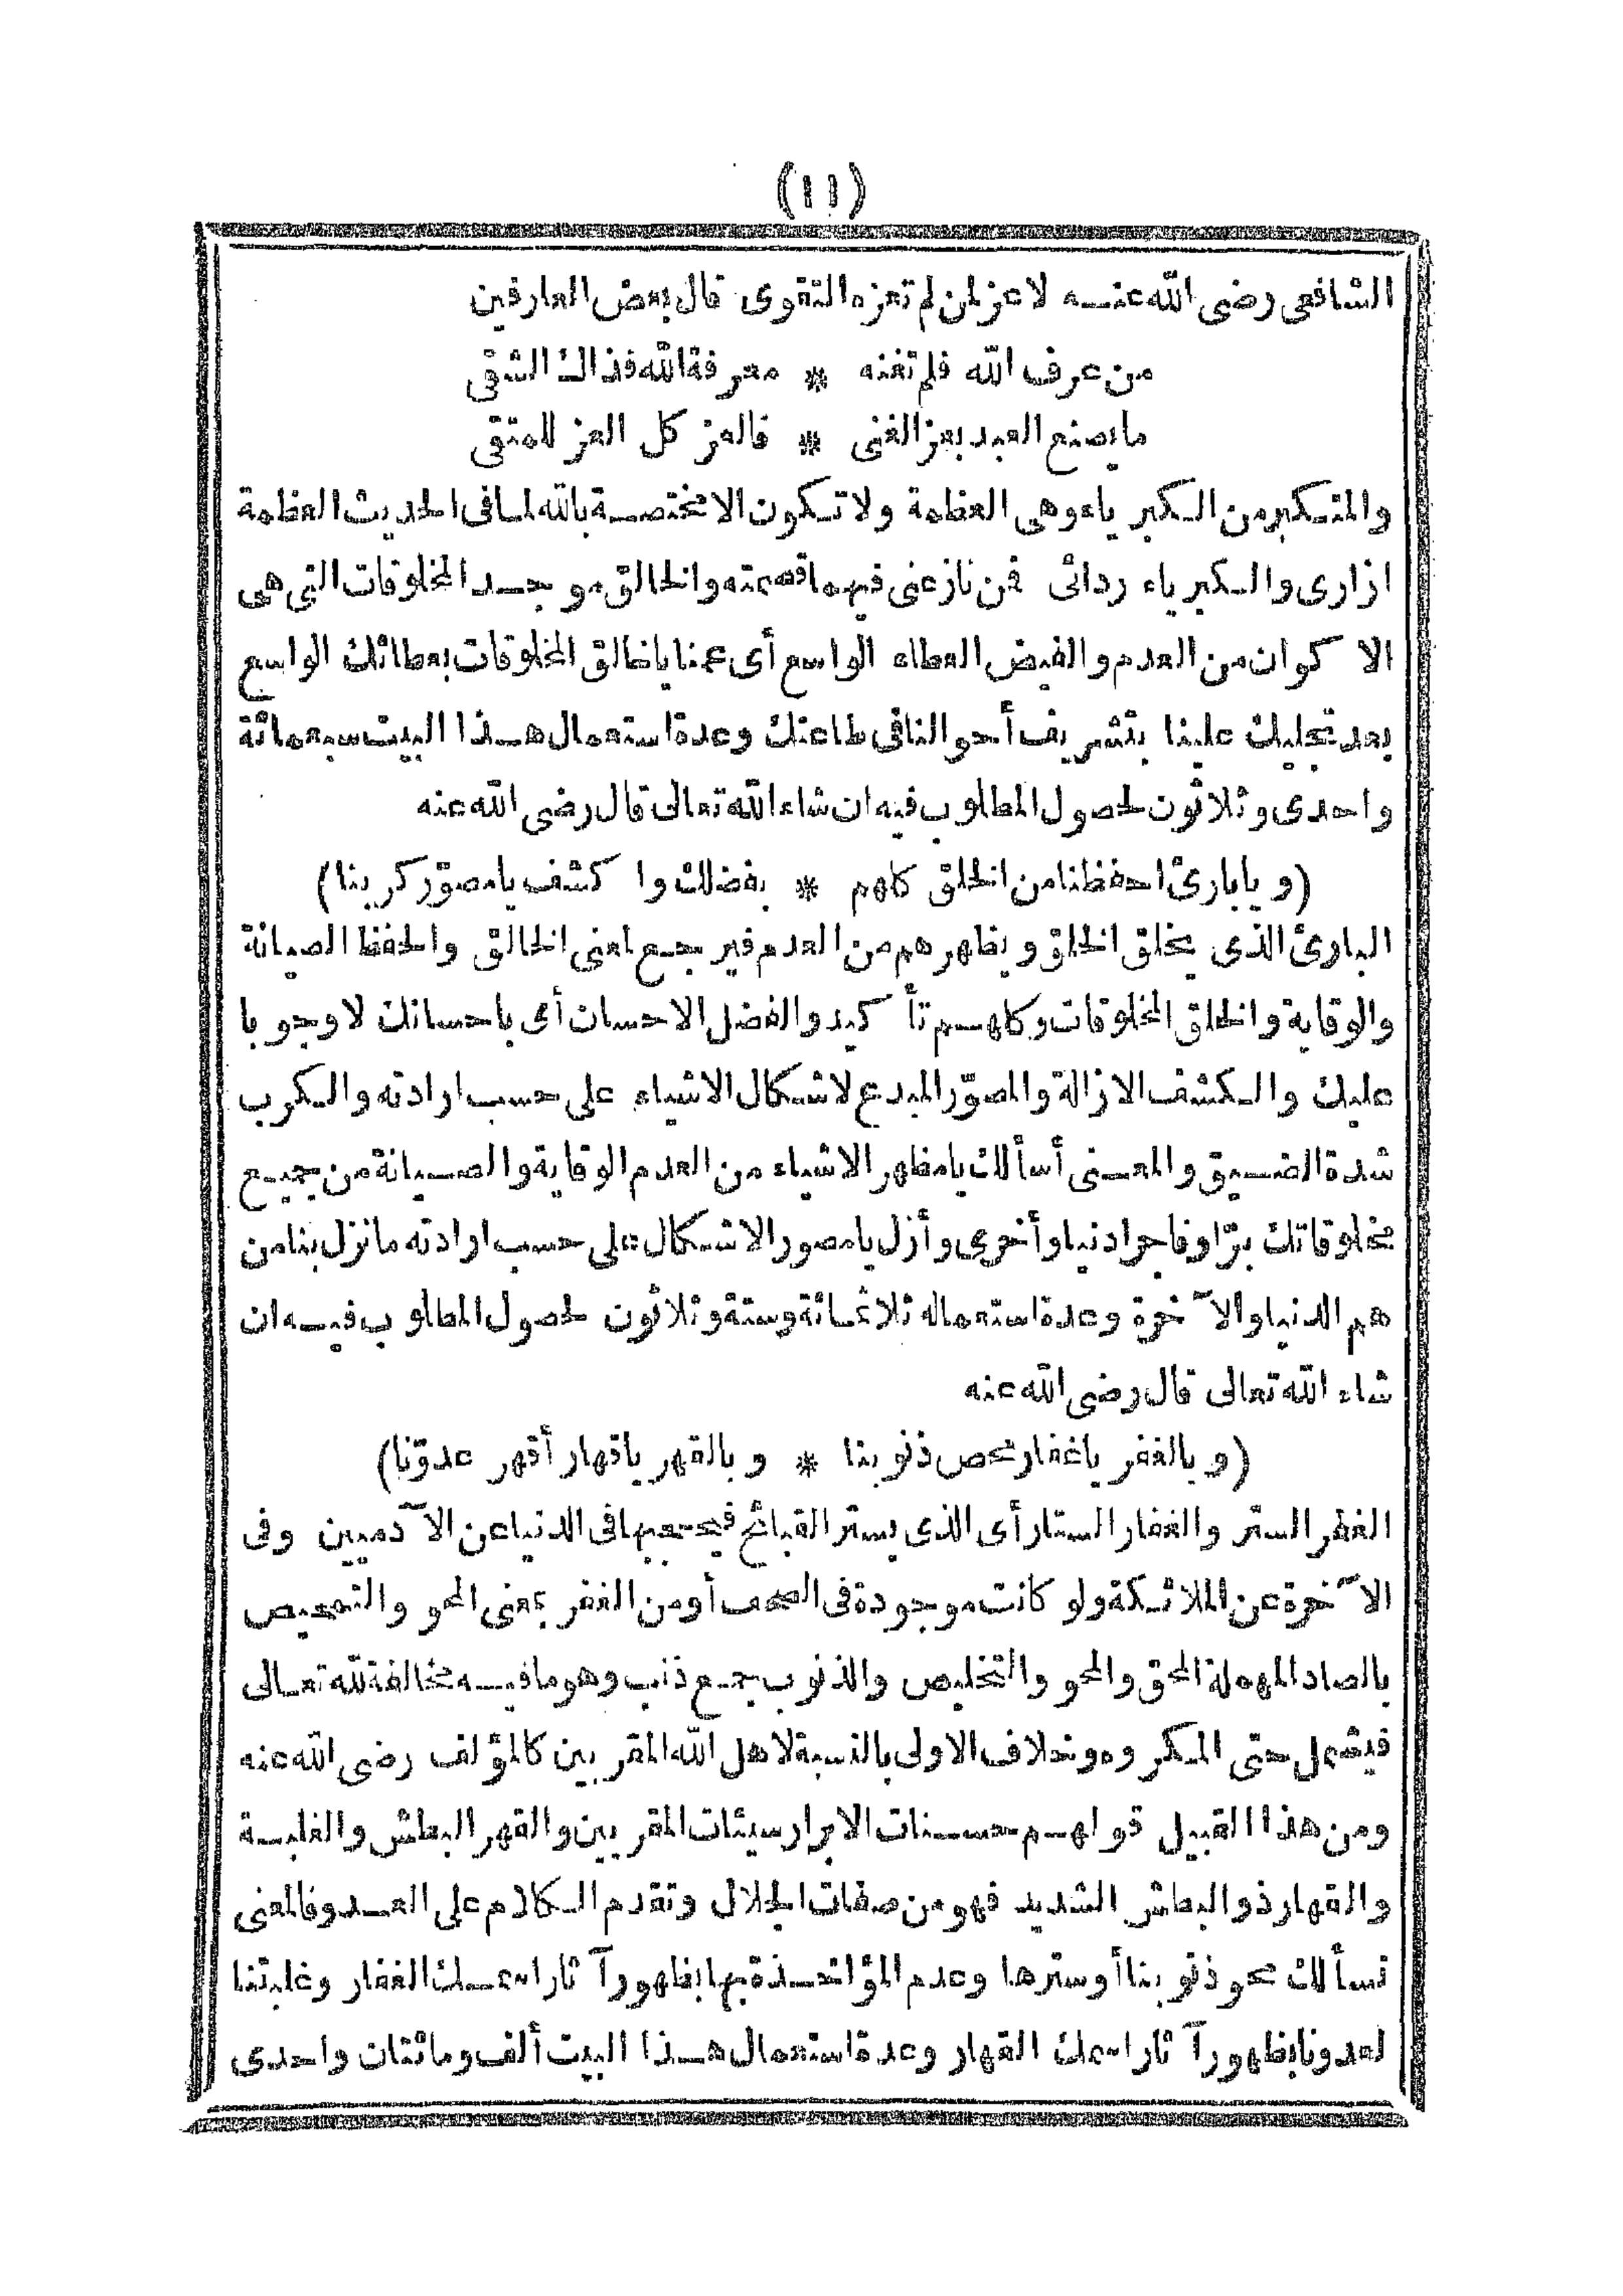 (١١)
الشافعى رضى الله عنـه لا عز لمن لم تعزه التقوى قال بعض العارفين
من عرف الله فلم تغنه * معرفة الله فذاك الشقى
ما يصنع العبد بعز الغنى * فالعز كل العز للمتقى
والمتكبر من الكبرياء وهى العظمة ولا تكون الا مختصة بالله لما فى الحديث العظمة
ازارى والكبرياء ردائى فمن نازعنى فيهما قصمته والخالق موجد المخلوقات التى هى
الاكوان من العدم والفيض العطاء الواسع أى عمنا يا خالق المخلوقات بعطائك الواسع
بعد تجليك علينا بتشريف أحوالنا فى طاعتك وعدة استعمال هذا البيت سبعمائة
واحدى وثلاثون لحصول المطلوب فيه ان شاء الله تعالى قال رضى الله عنه
(ويا بارئ احفظنا من الخلق كلهم * بفضلك واكشف يا مصوّر كربنا)
البارئ الذى يخلق الخلق ويظهرهم من العدم فيرجع لمعنى الخالق والحفظ الصيانة
والوقاية والخلق المخلوقات وكلهم تأكيد والفضل الاحسان أى باحسانك لا وجوبا
عليك والكشف الازالة والمصوّر المبدع لاشكال الاشياء على حسب ارادته والكرب
شدة الضيق والمعنى أسألك يا مظهر الاشياء من العدم الوقاية والصيانة من جميع
مخلوقاتك برّا وفاجرا دنيا وأخرى وأزل يا مصور الاشكال على حسب ارادته ما نزل بنا من
هم الدنيا والآخرة وعدة استعماله ثلاثمائة وستة وثلاثون لحصول المطلوب فيه ان
شاء الله تعالى قال رضى الله عنه
(وبالغفر يا غفار محص ذنوبنا * وبالقهر يا قهار أقهر عدوّنا)
الغفر الستر والغفار الستار أى الذى يستر القبائح فيحجبها فى الدنيا عن الآدميين وفى
الآخرة عن الملائكة ولو كانت موجودة فى الصحف أو من الغفر بمعنى المحو والتمحيص
بالصاد المهملة المحق والمحو والتخليص والذنوب جمع ذنب وهو ما فيه مخالفة لله تعالى
فيشمل حتى المكروه وخلاف الاولى بالنسبة لاهل الله المقربين كالمؤلف رضى الله عنه
ومن هذا القبيل قولهم حسنات الابرار سيئات المقربين والقهر البطش والغلبة
والقهار ذو البطش الشديد فهو من صفات الجلال وتقدم الكلام على العدو فالمعنى
نسألك محو ذنوبنا أو سترها وعدم المؤاخذة بها بظهور آثار اسمك الغفار وغلبتنا
لعدونا بظهور آثار اسمك القهار وعدة استعمال هذا البيت ألف ومائتان واحدى